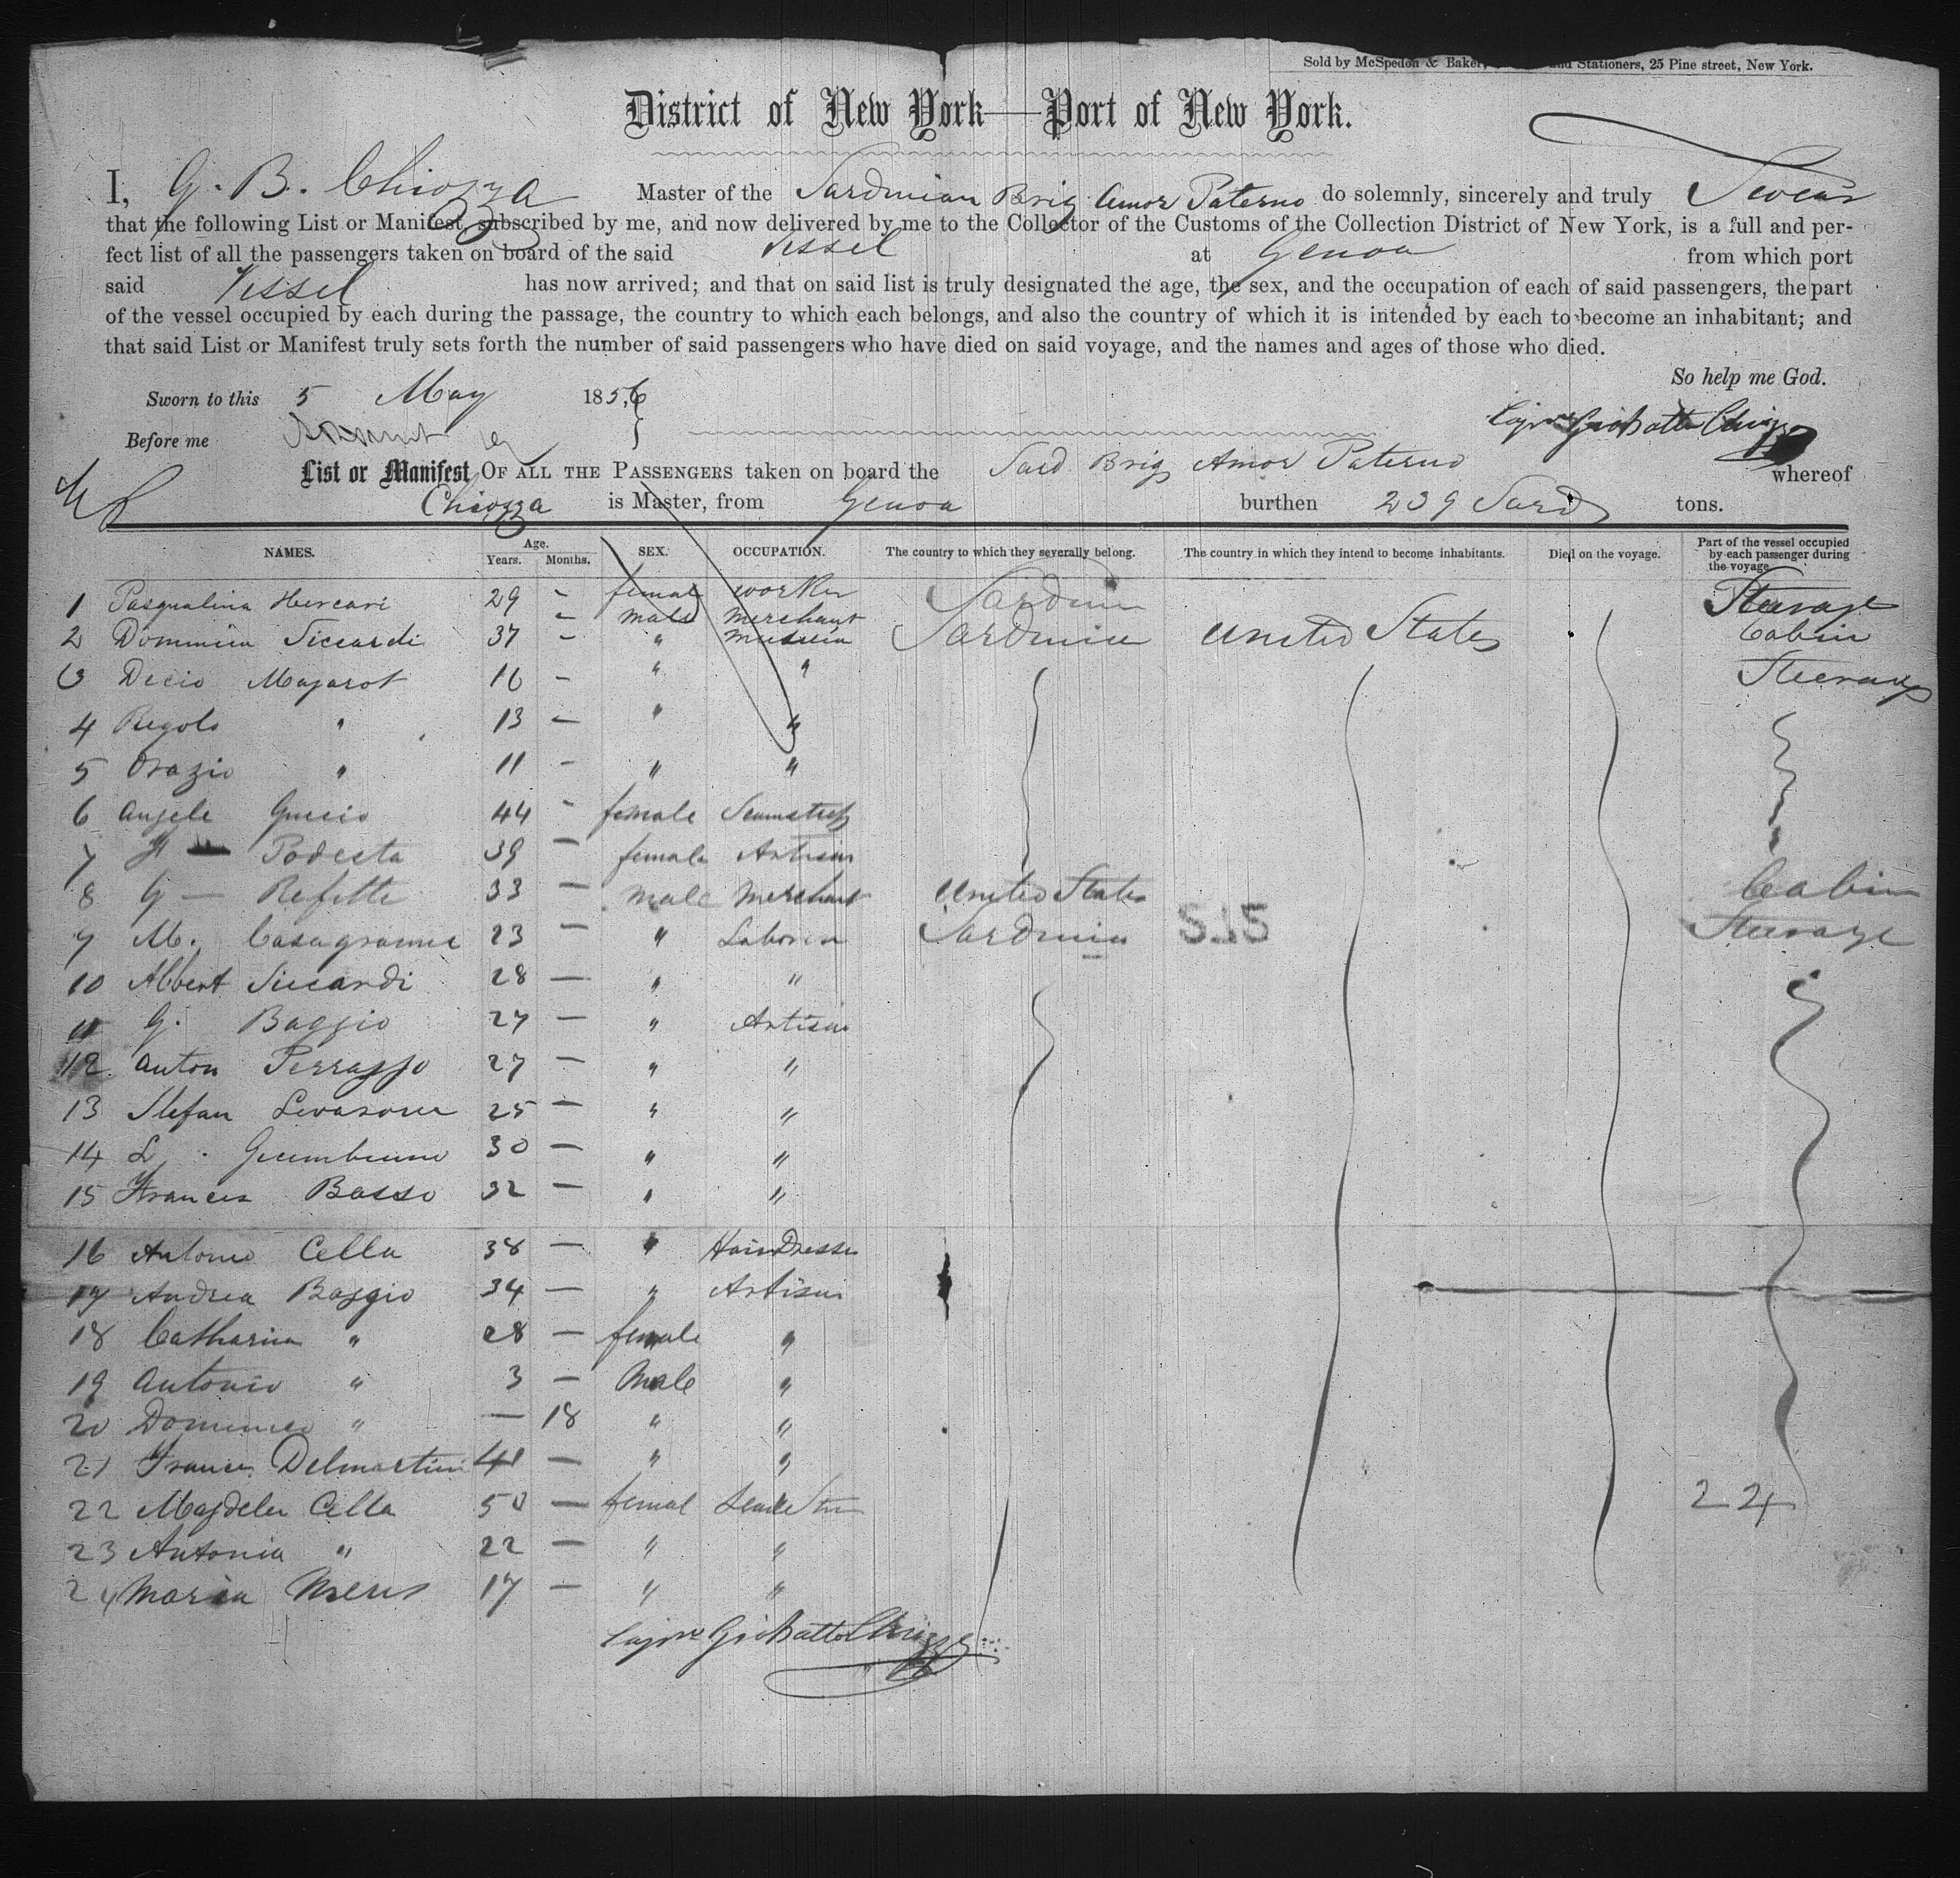 Sold by McSpedon & Baker, and Stationers, 25 Pine street, New York.
District of New York—Port of New York.
I, G. B. Chiozza Master of the Sardinian Brig Amor Paterno do solemnly, sincerely and truly Swear
that the following List or Manifest, subscribed by me, and now delivered by me to the Collector of the Customs of the Collection District of New York, is a full and per-
fect list of all the passengers taken on board of the said Vessel at Genoa from which port
said Vessel has now arrived; and that on said list is truly designated the age, the sex, and the occupation of each of said passengers, the part
of the vessel occupied by each during the passage, the country to which each belongs, and also the country of which it is intended by each to become an inhabitant; and
that said List or Manifest truly sets forth the number of said passengers who have died on said voyage, and the names and ages of those who died.
So help me God.
Sworn to this 5 May 1856
Before me
List or Manifest OF ALL THE PASSENGERS taken on board the Sard Brig Amor Paterno whereof
Chiozza is Master, from Genoa burthen 239 Sard tons.
NAMES. Age. Years. Months. SEX. OCCUPATION. The country to which they severally belong. The country in which they intend to become inhabitants. Died on the voyage. Part of the vessel occupied by each passenger during the voyage
1 Pasqualina 29 - female worker Sardinia Steerage
2 Siccardi 37 - male merchant Sardinia United States Cabin
3 Decio 16 - " " Steerage
4 Regolo " 13 - " "
5 Orazio " 11 - " "
6 Angele 44 - female
7 Podesta 39 — female Artisan
8 G — 33 — male merchant United States Cabin
9 M. 23 — " Laborer Sardinia Steerage
515
10 Albert Siccardi 28 — " "
11 G. Baggio 27 — " Artisan
12 Anton 27 — " "
13 Stefan 25 — " "
14 L. 30 — " "
15 Basso 32 — " "
16 Antonio Cella 38 — " HairDresser
17 Andrea Baggio 34 — " Artisan
18 Catharina " 28 — female "
19 Antonio " 3 — Male "
20 Domenico " — 18 " "
21 Delmartini 41 — " "
22 Cella 50 — femal
24
23 Antonia " 22 — " "
24 Maria 17 — " "